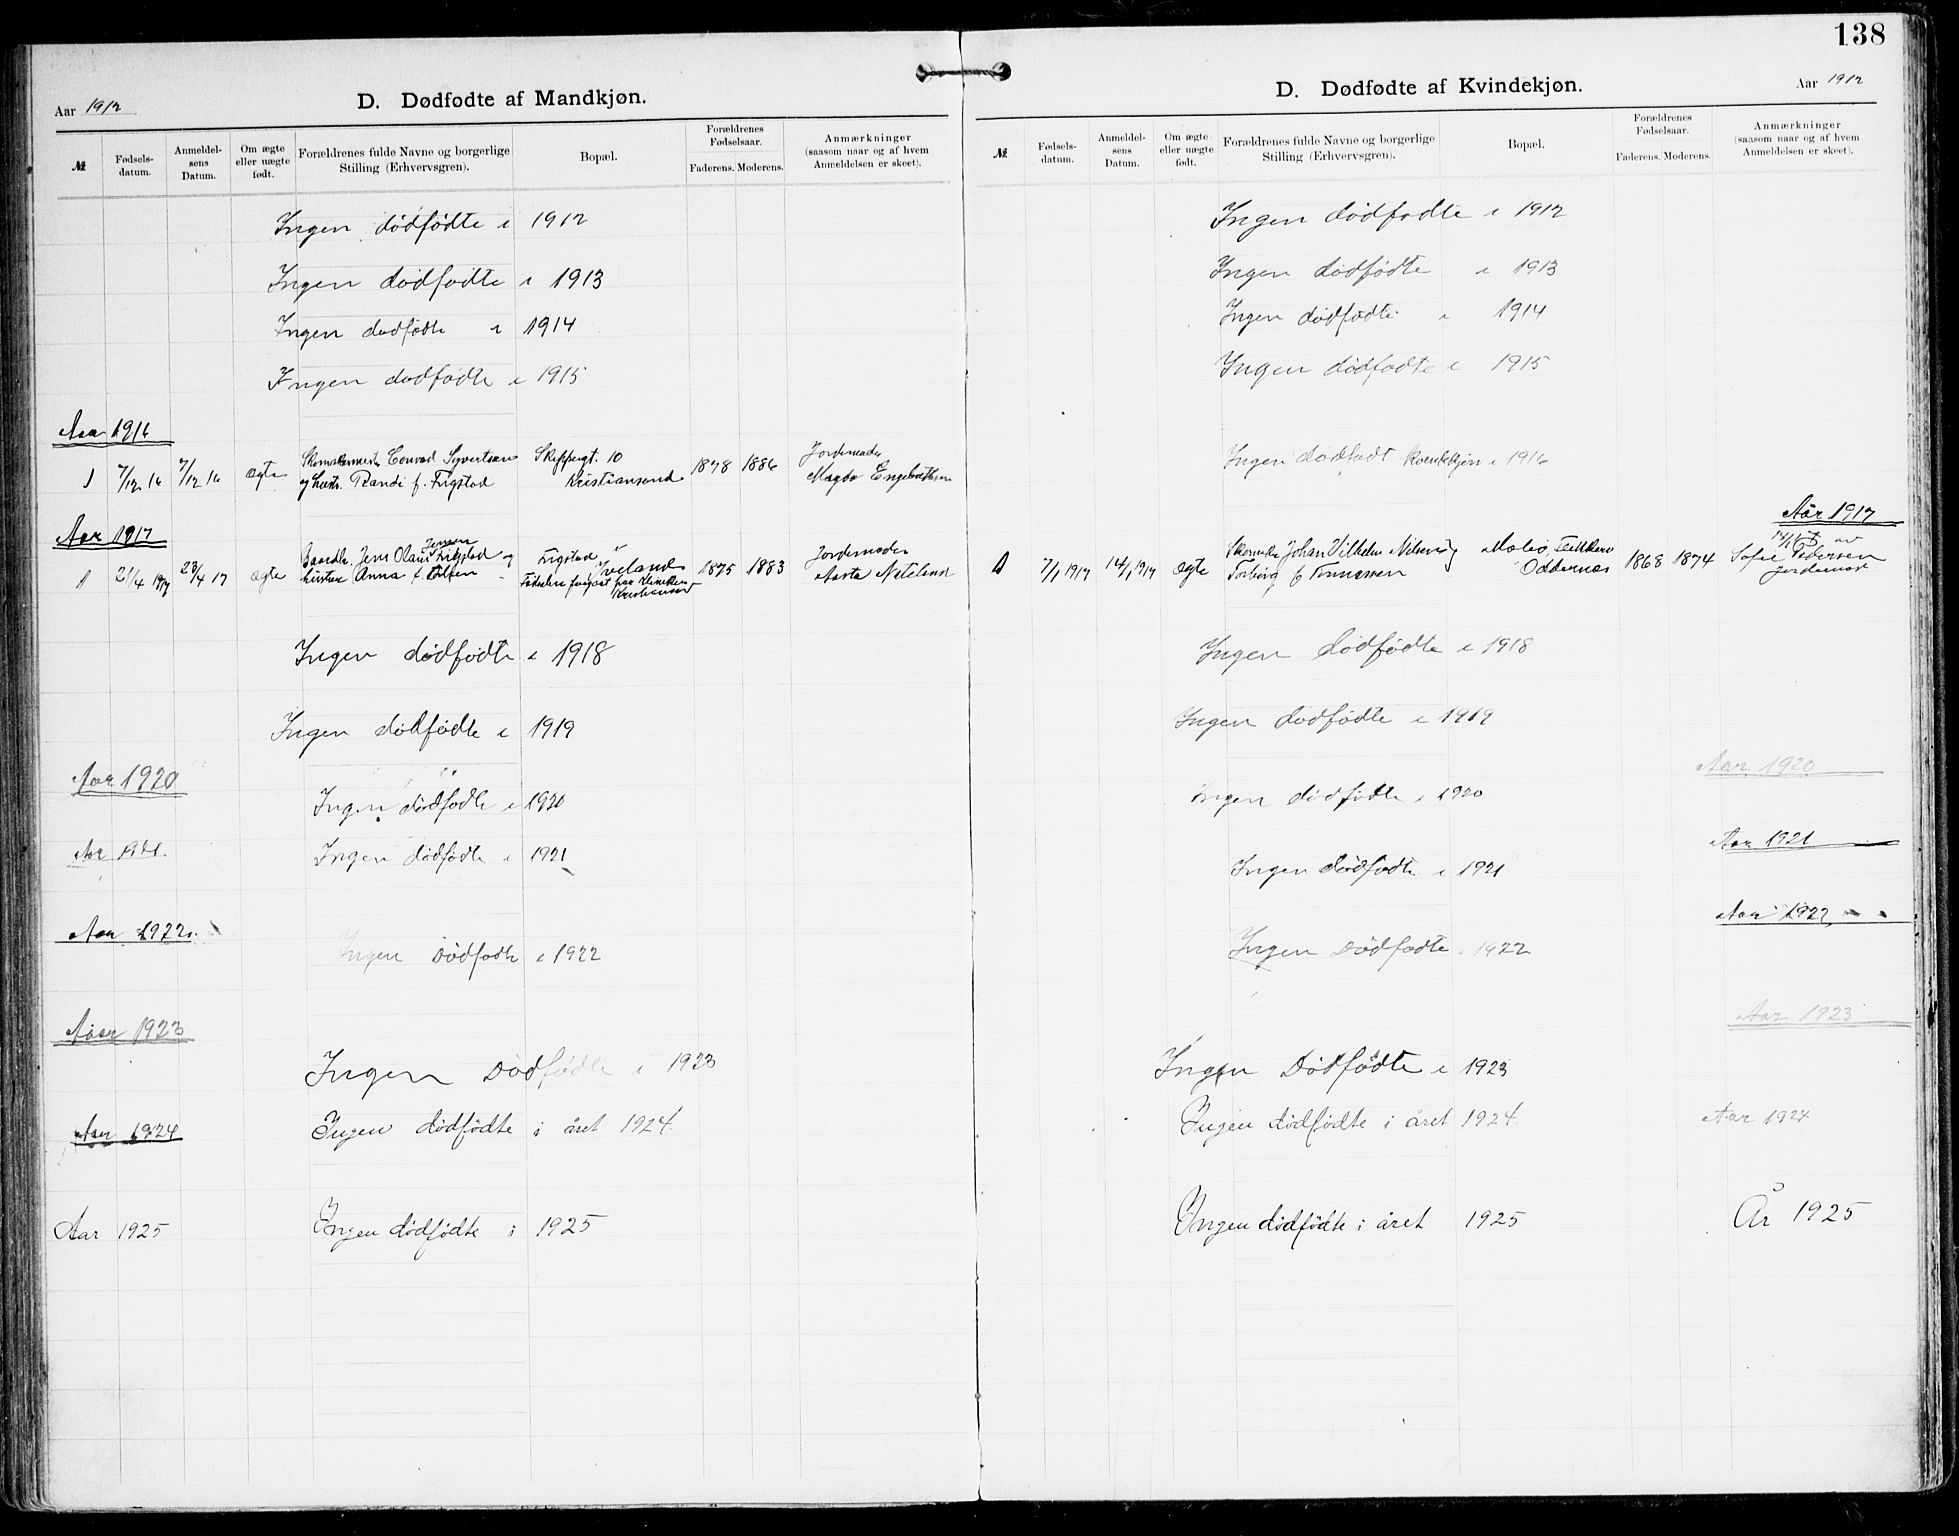 138
Aar 1912
D. Dødfødte af Mandkjøn.
№
Fødsels-
datum.
Anmeldel-
sens
Datum.
Om ægte
eller uægte
født.
Forældrenes fulde Navne og borgerlige
Stilling (Erhvervsgren).
Bopæl.
Forældrenes
Fødselsaar.
Faderens. Moderens.
Anmærkninger
(saasom naar og af hvem
Anmeldelsen er skeet).
Ingen dødfødte i 1912
Ingen dødfødte i 1913
Ingen dødfødte i 1914
Ingen dødfødte i 1915
Aar 1916
1 7/12 16 7/12 16 ægte Conrad Syvertsen Skippergt. 10 1878 1886 Jordemoder
og hustr. Randi f. Frigstad Kristiansand Magda Engebrethsen
Aar 1917
Jensen
1 21/4 1917 23/4 17 ægte Jens Olaus Frigstad og Frigstad i Iveland 1875 1883 Jordemoder
hustru Anna f. Aasta Neteland
Kristiansand
Ingen dødfødte i 1918
Ingen dødfødte i 1919
Aar 1920
Ingen dødfødte i 1920
Aar 1921.
Ingen dødfødte i 1921
Aar 1922.
Ingen Dødfødte i 1922
Aar 1923
Ingen Dødfødte i 1923
Aar 1924
Ingen dødfødte i året 1924.
Aar 1925
Ingen dødfødte i 1925
D. Dødfødte af Kvindekjøn.
Aar 1912
№
Fødsels-
datum.
Anmeldel-
sens
Datum.
Om ægte
eller uægte
født.
Forældrenes fulde Navne og borgerlige
Stilling (Erhvervsgren).
Bopæl.
Forældrenes
Fødselsaar.
Faderens. Moderens.
Anmærkninger
(saasom naar og af hvem
Anmeldelsen er skeet).
Ingen dødfødte i 1912
Ingen dødfødte i 1913
Ingen dødfødte i 1914
Ingen dødfødte i 1915
Ingen dødfødt kvindekjøn i 1916
Aar 1917
1 7/1 1917 14/1 1917 ægte Johan Vilhelm Nilsen og 1868 1874 Sofie Pedersen
Torborg f. Oddernes Jordemoder
Ingen dødfødte i 1918
Ingen dødfødte i 1919
Aar 1920
Ingen dødfødte i 1920
Aar 1921
Ingen dødfødte i 1921
Aar 1922
Ingen Dødfødte i 1922
Aar 1923
Ingen Dødfødte i 1923
Ingen dødfødte i året 1924. Aar 1924
Ingen dødfødte i året 1925 År 1925